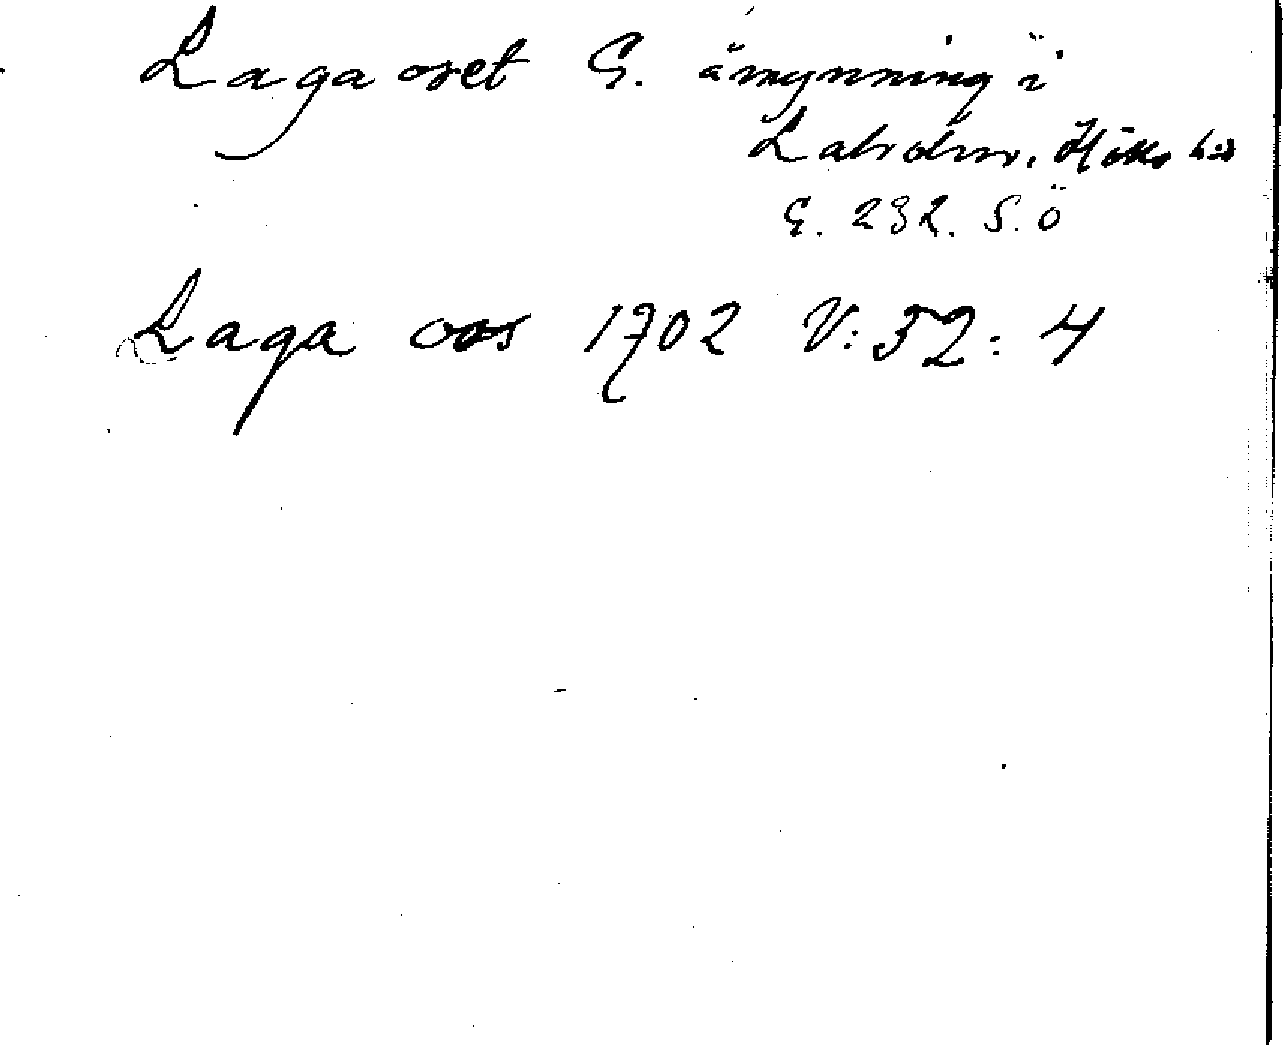 Lagaoset G. åmynning i
Laholm, Höks hd
G. 232. S. ö
Laga oos 1702 V: 52: 4